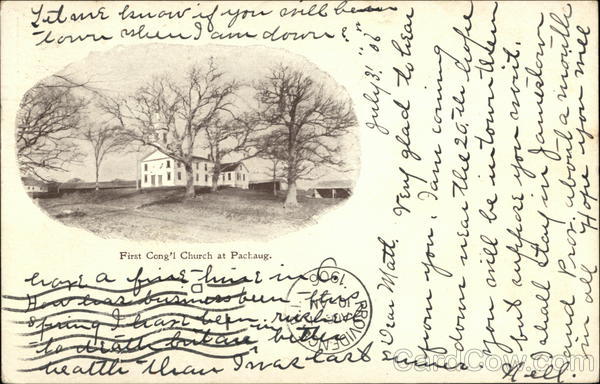 Let me know if you will be in
town when I am down?
First Cong'l Church at Pachaug.
July 31 "06"
Dear Matt,
Very glad to hear
from you. I am coming
down near the 20th hope
you will be in town then
but suppose you won't.
I shall stay in Jamestown
and Prov. about a month
in all Hope you will
have a fine time in
How has business been this
spring I have been rushed
to death but are better
health than I was last
summer.
Nell.
PROVIDENCE
1906
CardCow.com